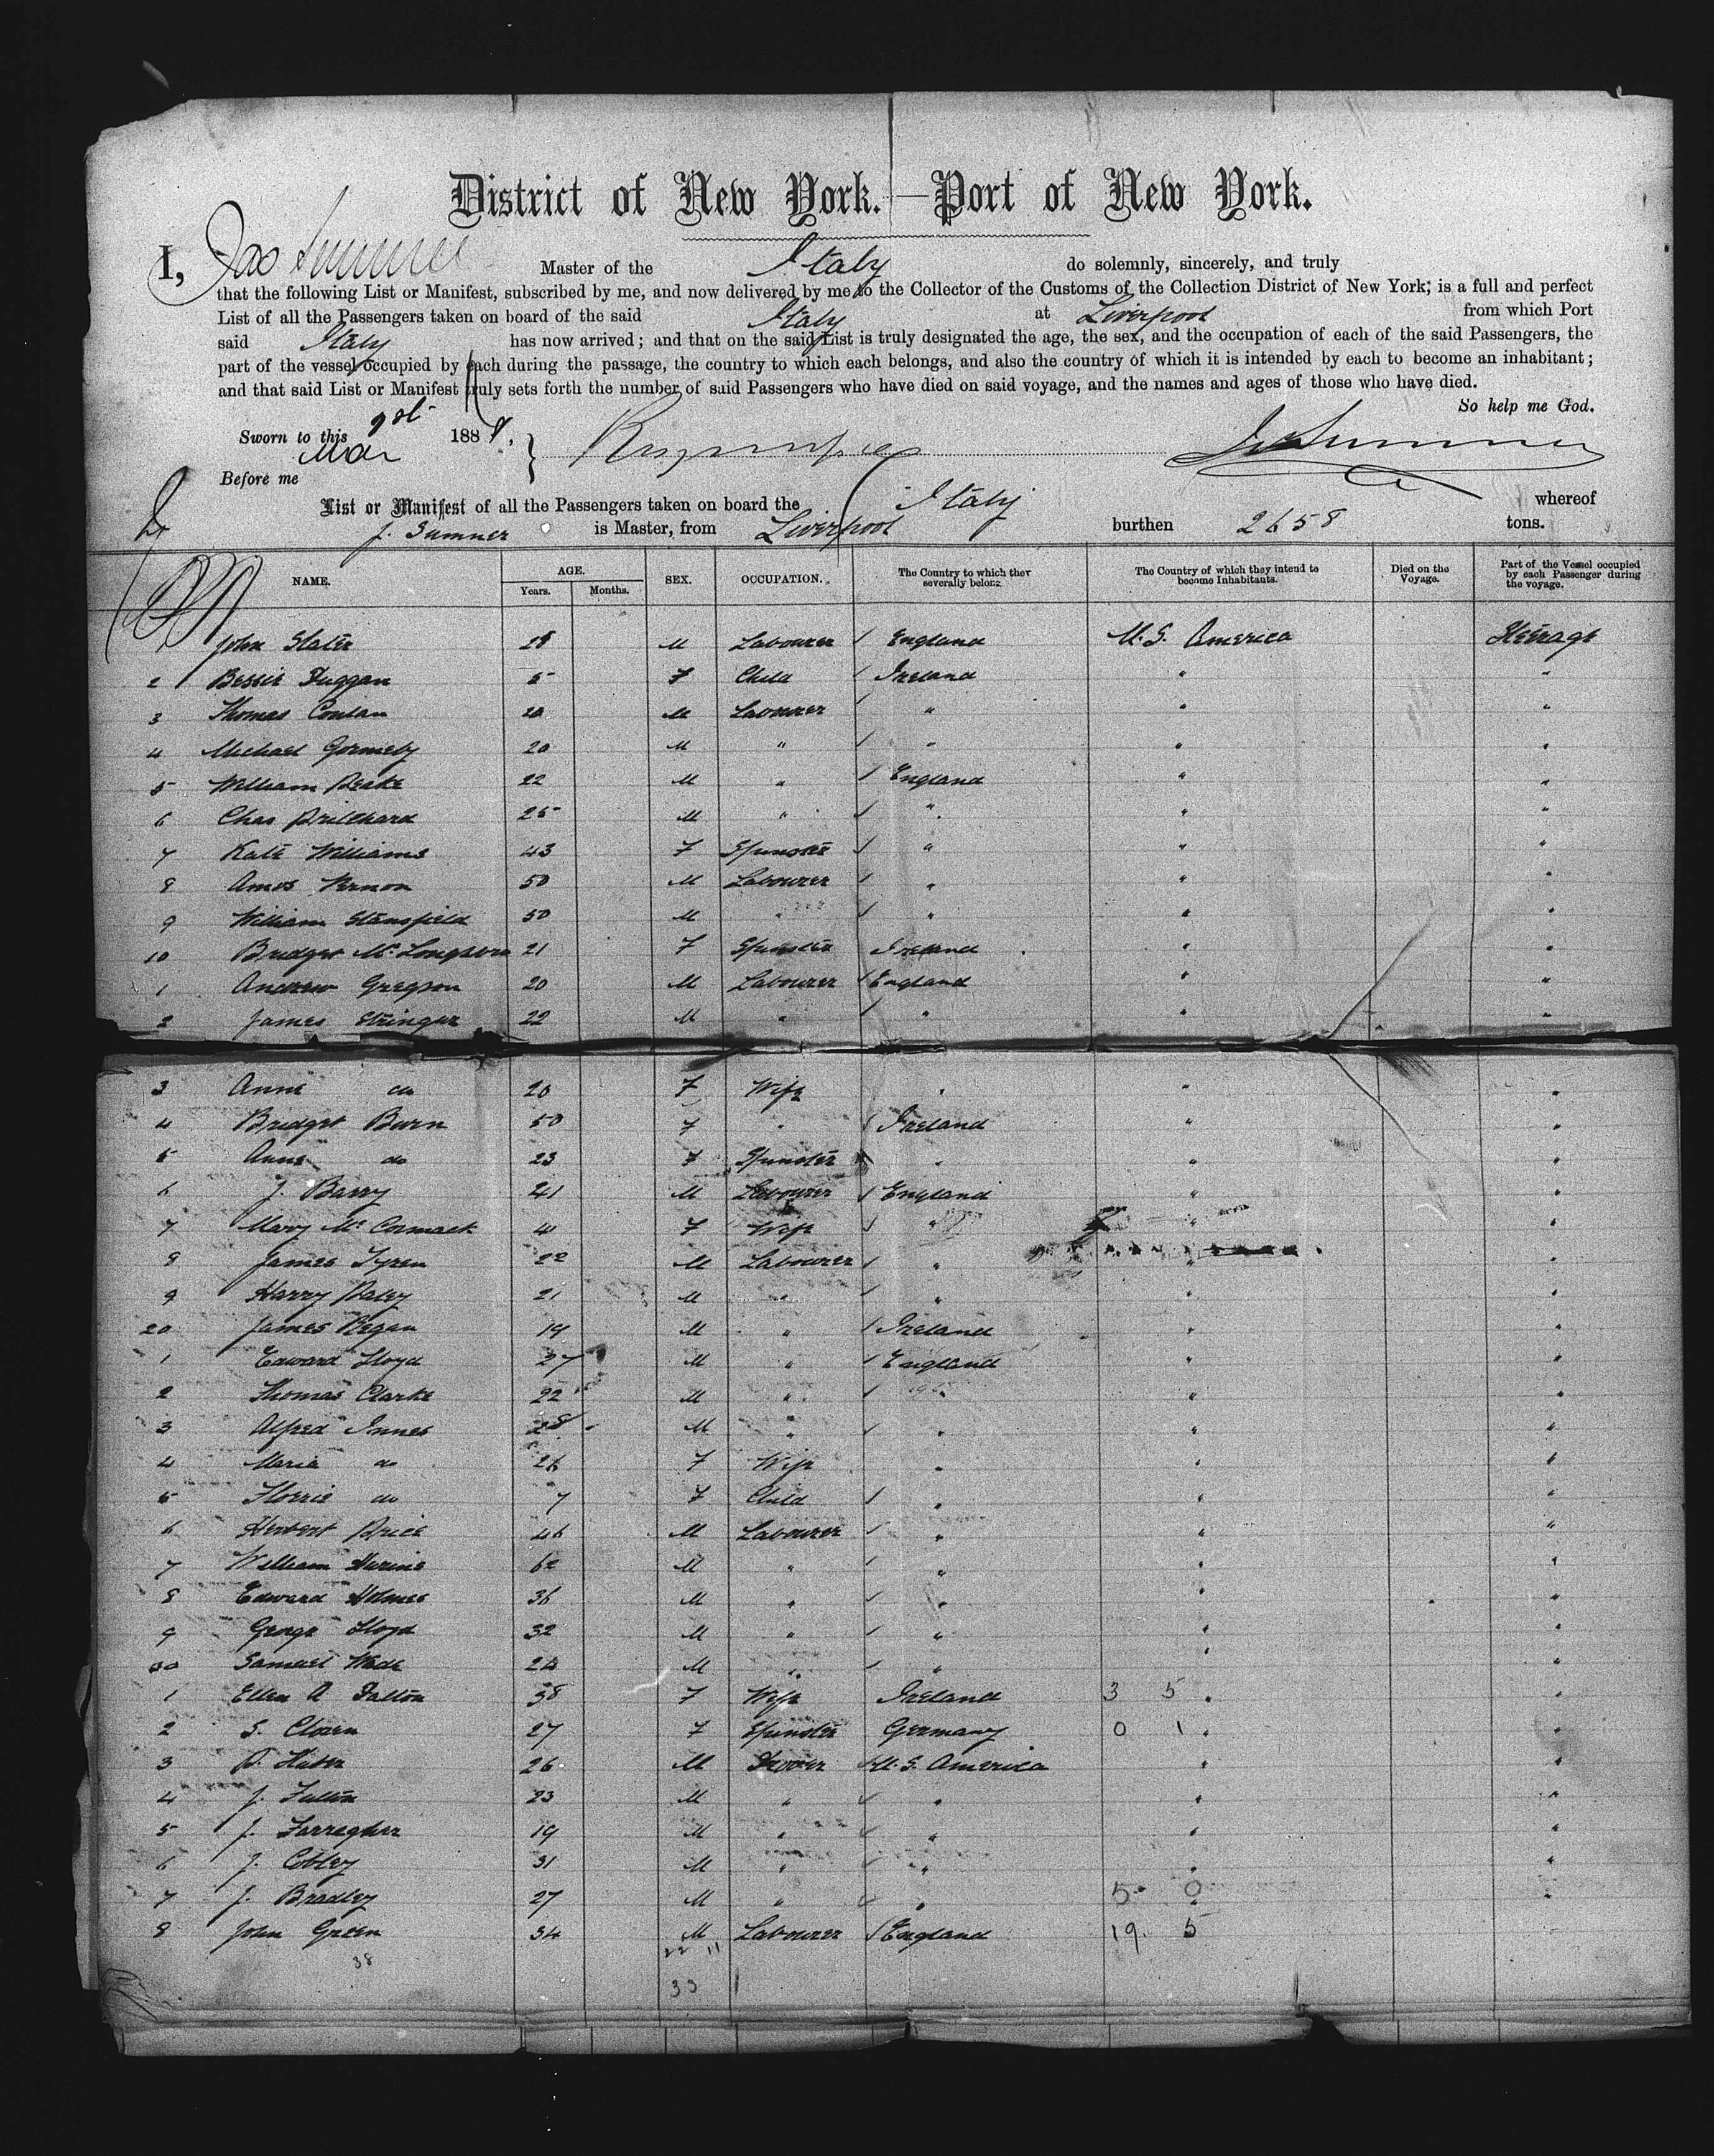 District of New York.—Port of New York.
I, Jas Sumner Master of the Italy do solemnly, sincerely, and truly
that the following List or Manifest, subscribed by me, and now delivered by me to the Collector of the Customs of the Collection District of New York; is a full and perfect
List of all the Passengers taken on board of the said Italy at Liverpool from which Port
said Italy has now arrived; and that on the said List is truly designated the age, the sex, and the occupation of each of the said Passengers, the
part of the vessel occupied by each during the passage, the country to which each belongs, and also the country of which it is intended by each to become an inhabitant;
and that said List or Manifest truly sets forth the number of said Passengers who have died on said voyage, and the names and ages of those who have died.
So help me God.
Sworn to this 188
Mar
Before me
List or Manifest of all the Passengers taken on board the Italy whereof
J. Sumner is Master, from Liverpool burthen 2658 tons.
NAME. AGE. Years. Months. SEX. OCCUPATION. The Country to which they severally belong. The Country of which they intend to become Inhabitants. Died on the Voyage. Part of the Vessel occupied by each Passenger during the voyage.
1 John Slater 28 M Labourer England U.S. America Steerage
2 Bessie Duggan 5 F Child Ireland " "
3 Thomas Conlan 20 M Labourer " " "
4 Michael Gormely 20 M " " " "
5 William 22 M " England " "
6 Chas Pritchard 25 M " " " "
7 Kate Williams 43 F Spinster " " "
8 Amos Vernon 50 M Labourer " " "
9 William Stansfield 50 M " " " "
10 Bridget 21 F Spinster Ireland " "
1 Andrew Gregson 20 M Labourer England " "
2 James Stringer 22 M " " " "
3 Anne do 20 F Wife " " "
4 Bridget Burn 50 F " Ireland " "
5 Anne do 23 F Spinster " " "
6 J. Barry 41 M Labourer England " "
7 Mary McCormack 41 F Wife " " "
8 James 22 M Labourer " " "
9 Harry Paley 21 M " " " "
20 James Regan 19 M " Ireland " "
1 Edward Lloyd 27 M " England " "
2 Thomas Clarke 22 M " " " "
3 Alfred Innes 28 M " " " "
4 Maria do 26 F Wife " " "
5 Florrie do 7 F Child " " "
6 Herbert Price 46 M Labourer " " "
7 William 62 M " " " "
8 Edward Holmes 36 M " " " "
9 George Lloyd 32 M " " " "
30 Samuel Wade 24 M " " " "
1 Ellen A Dalton 38 F Wife Ireland 3 5 " "
2 S. 27 F Spinster Germany 0 1 " "
3 26 M Drover U.S. America " "
4 J. Fulton 23 M " " " "
5 J. Farragher 19 M " " " "
6 J. Cobley 31 M " " " "
7 J. Bradley 27 M " " 5 0 " "
8 John Green 34 M Labourer England 19. 5
38 22 11
33